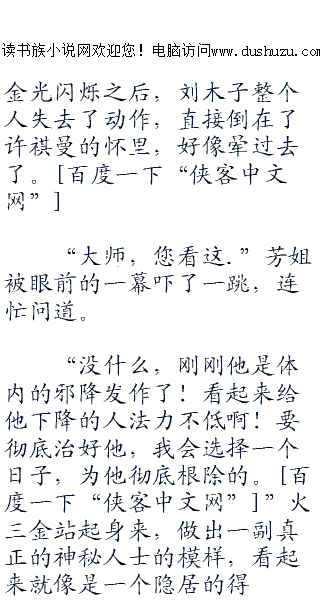 读书族小说网欢迎您！电脑访问www.dushuzu.com
金光闪烁之后，刘木子整个
人失去了动作，直接倒在了
许祺曼的怀里，好像晕过去
了。[百度一下“侠客中文
网”]
“大师，您看这.”芳姐
被眼前的一幕吓了一跳，连
忙问道。
“没什么，刚刚他是体
内的邪降发作了！看起来给
他下降的人法力不低啊！要
彻底治好他，我会选择一个
日子，为他彻底根除的。[百
度一下“侠客中文网”]”火
三金站起身来，做出一副真
正的神秘人士的模样，看起
来就像是一个隐居的得